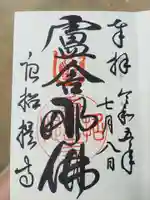 奉拝
令和五年
七月八日
盧舎那佛
唐招提寺